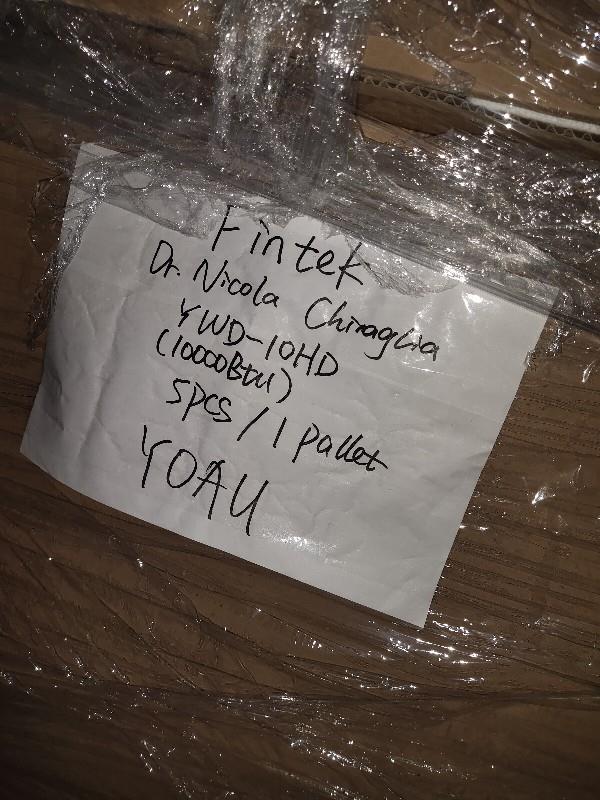 Fintek
Dr. Nicola Chiraglia
YWD-10HD
(10000Btu)
5pcs / 1 pallet
YOAU